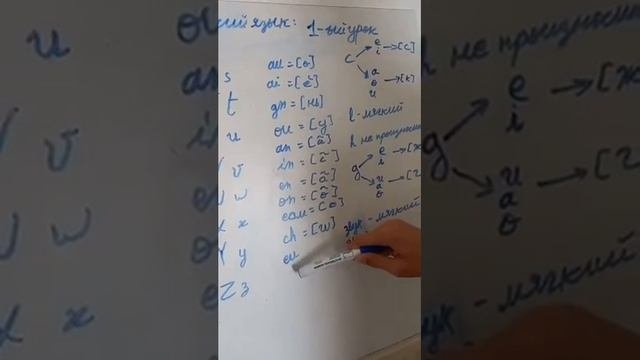 кий язык: 1-ый урок
u
s
t
u
v
v
w
x
Y y
Z z
x
au = [o]
ai = [è]
gn = [нь]
ou = [у]
an = [ã]
in = [ẽ]
en = [ã]
on = [õ]
eau = [o]
ch = [ш]
eu
c
e
i
→ [c]
a
o
u
→ [к]
l - мягкий
h не произносит
g
e
i
→ [ж
u
a
o
→ [г
звук - мягкий